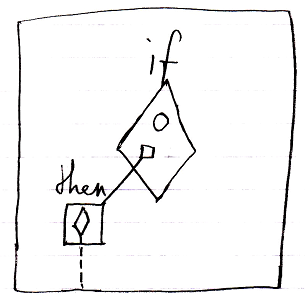 if
then